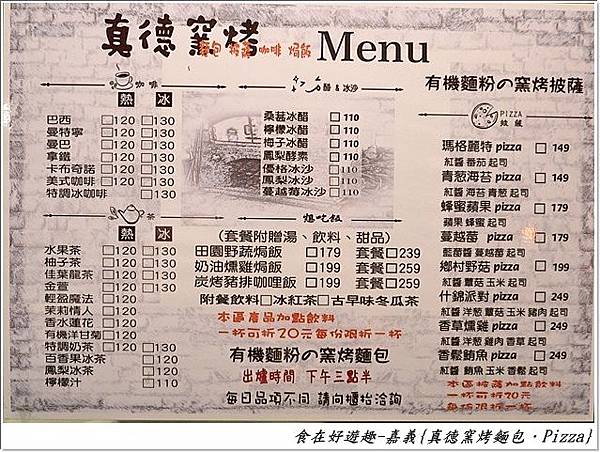 真德窯烤 Menu
麵包 披薩 咖啡 焗飯
咖啡
熱 冰
巴西 □120 □130
曼特寧 □120 □130
曼巴 □120 □130
拿鐵 □120 □130
卡布奇諾 □120 □130
美式咖啡 □120 □130
特調冰咖啡 □130
茶
熱 冰
水果茶 □120 □130
柚子茶 □120 □130
佳葉龍茶 □120 □130
金萱 □120 □130
輕盈魔法 □120
茉莉情人 □120
香水蓮花 □120
有機洋甘菊 □120
特調奶茶 □120 □130
百香果冰茶 □120
鳳梨冰茶 □120
檸檬汁 □120
醋 & 冰沙
桑葚冰醋 □110
檸檬冰醋 □110
梅子冰醋 □110
鳳梨酵素 □110
優格冰沙 □110
鳳梨冰沙 □110
蔓越莓冰沙 □110
想吃飯
(套餐附贈湯、飲料、甜品)
田園野蔬焗飯 □179 套餐□239
奶油燻雞焗飯 □199 套餐□259
炭烤豬排咖哩飯 □199 套餐□259
附餐飲料□冰紅茶□古早味冬瓜茶
本區產品加點飲料
一杯可折20元每份限折一杯
有機麵粉の窯烤麵包
出爐時間 下午三點半
每日品項不同 請向櫃枱洽詢
有機麵粉の窯烤披薩
PIZZA
披薩
瑪格麗特pizza □149
紅醬 番茄 起司
青葱海苔pizza □149
紅醬 海苔 青葱 起司
蜂蜜蘋果pizza □179
蘋果 蜂蜜 起司
蔓越莓 pizza □179
藍莓醬 蔓越莓 起司
鄉村野菇pizza □199
紅醬 蘑菇 玉米 起司
什錦派對pizza □249
紅醬 洋葱 蘑菇 玉米 豬肉 起司
香草燻雞pizza □249
紅醬 洋葱 雞肉 香草 起司
香鬆鮪魚pizza □249
紅醬 鮪魚 玉米 香鬆 起司
本區披薩加點飲料
一杯可折20元
每份限折一杯
食在好遊趣-嘉義{真德窯烤麵包·Pizza}